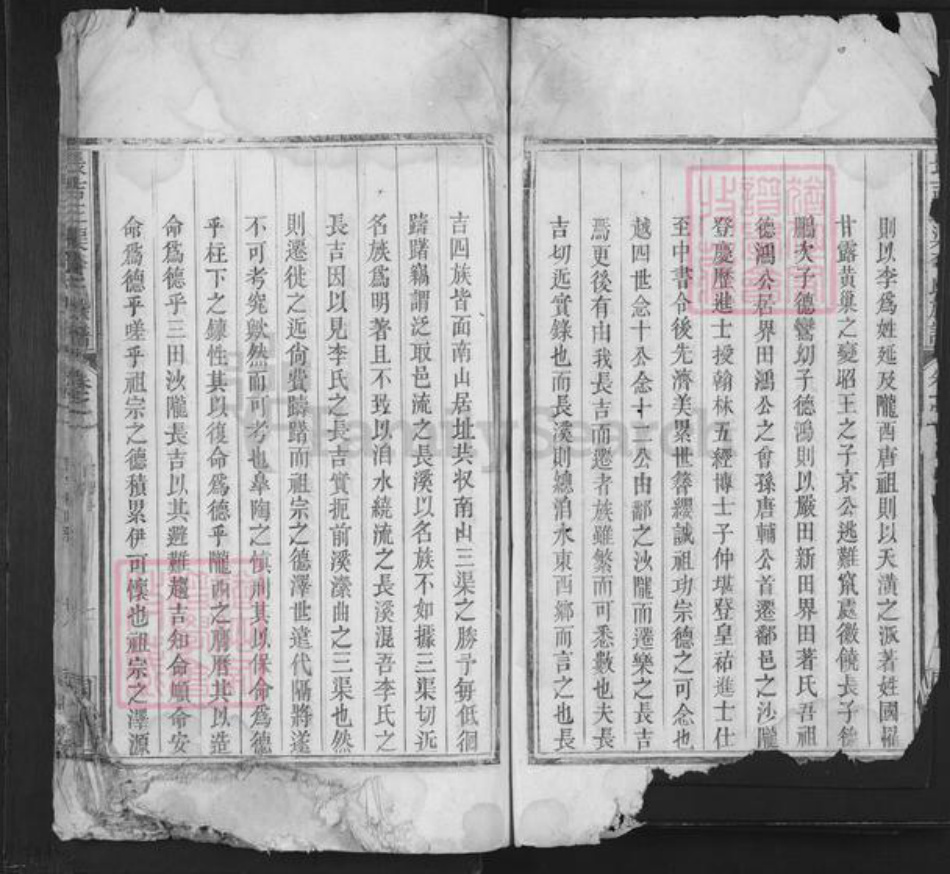 則以李爲姓延及隴西唐祖則以天潢之派著姓國
甘露黃巢之變昭王之子京公逃難竄處徽饒長子德
鵬次子德鸞幼子德鴻則以嚴田新田界田著氏吾祖
德鴻公居界田鴻公之會孫唐輔公首遷鄱邑之沙隴
登慶歷進士授翰林五經博士子仲堪登皇祐進士仕
至中書令後先濟美累世簪纓誠祖功宗德之可念也
越四世念十公念十二公由鄱之沙隴而遷樂之長吉
焉更後有由我長吉而遷者族雖繁而可悉數也夫長
吉切近實錄也而長溪則總洎水東西鄉而言之也長
吉四族皆面南山居址共収南山三渠之勝予每低徊
躊躇竊謂泛取邑流之長溪以名族不如據三渠切近
名族爲明著且不致以洎水繞流之長溪混吾李氏之
長吉因以見李氏之長吉實扼前溪瀠曲之三渠也然
則遷徙之近尙費躊躇而祖宗之德澤世遠代隔將遂
不可考究歟然而可考也臯陶之慎刑其以保命爲德
乎柱下之鍊性其以復命爲德乎隴西之膺曆其以造
命爲德乎三田沙隴長吉以其避難趨吉知命順命安
命爲德乎嗟乎祖宗之德積累伊可懷也祖宗之澤源
FamilySearch